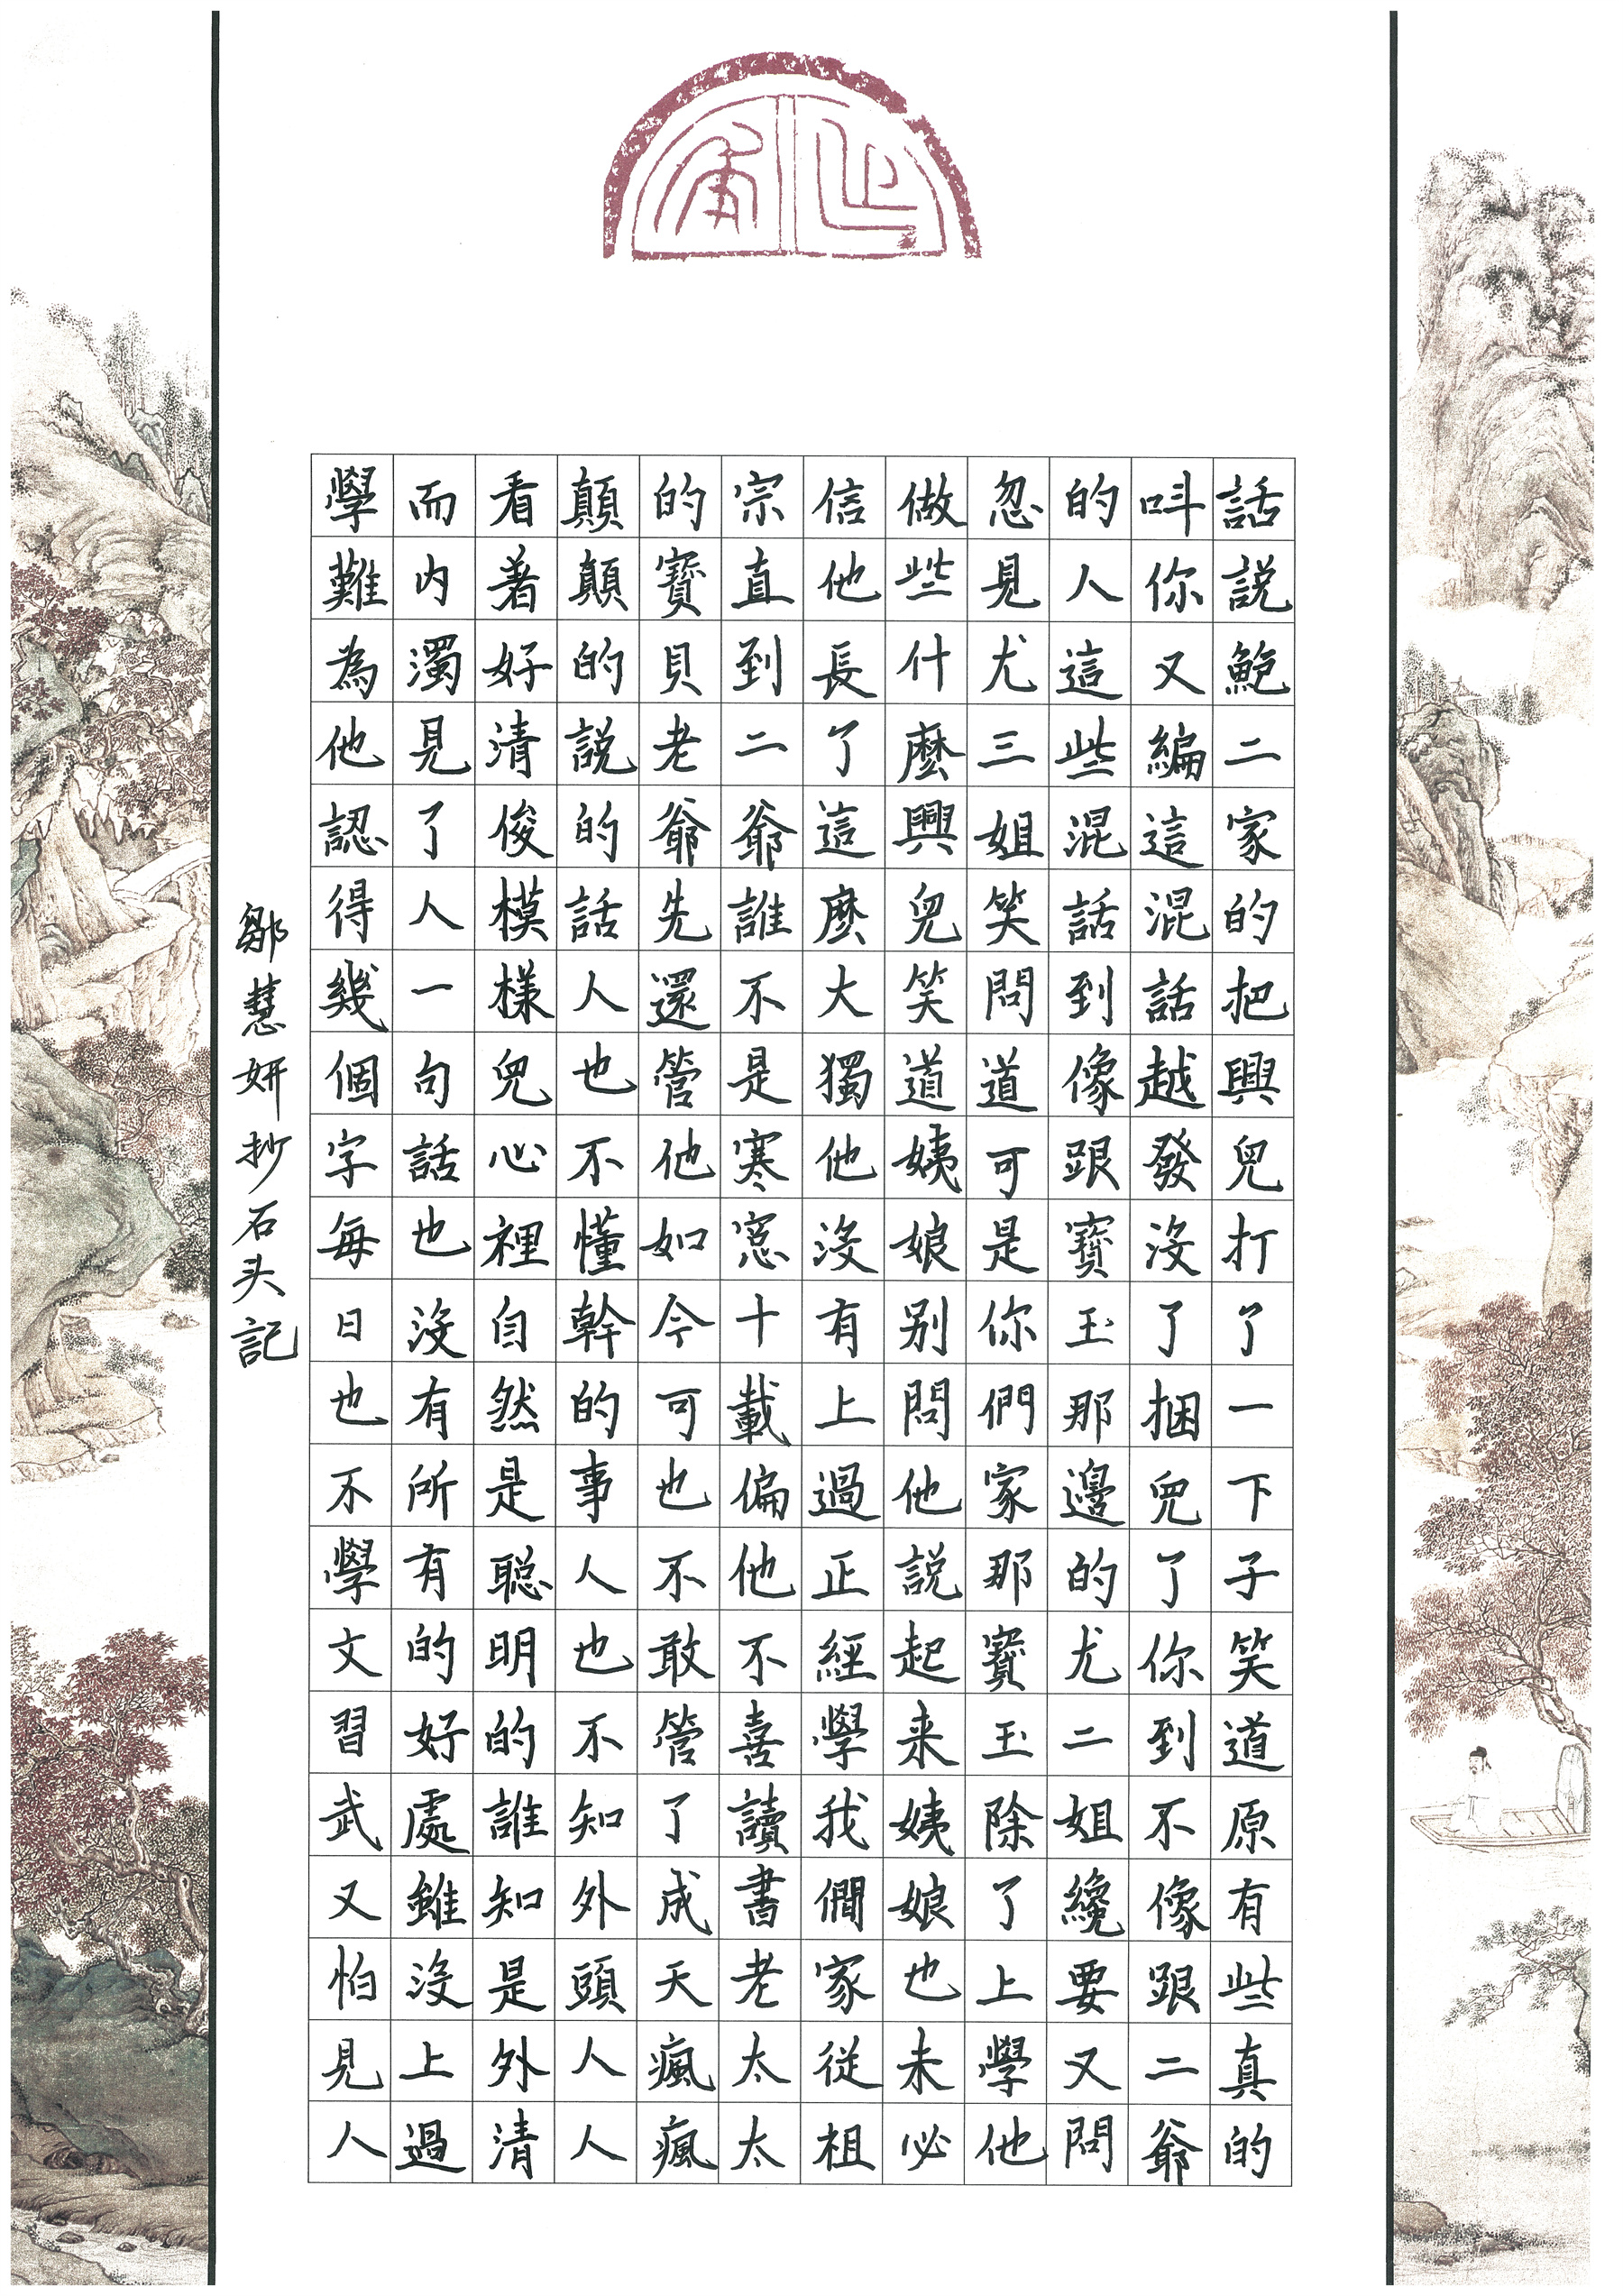 話説鮑二家的把興兒打了一下子笑道原有些真的
呌你又編這混話越發沒了捆兒了你到不像跟二爺
的人這些混話到像跟寶玉那邊的尤二姐纔要又問
忽見尤三姐笑問道可是你們家那寶玉除了上學他
做些什麼興兒笑道姨娘别問他説起来姨娘也未必
信他長了這麼大獨他沒有上過正經學我們家從祖
宗直到二爺誰不是寒窓十載偏他不喜讀書老太太
的寶貝老爺先還管他如今可也不敢管了成天瘋瘋
顛顛的説的話人也不懂幹的事人也不知外頭人人
看着好清俊模樣兒心裡自然是聰明的誰知是外清
而内濁見了人一句話也沒有所有的好處雖沒上過
學難為他認得幾個字每日也不學文習武又怕見人
鄒慧妍抄石头記